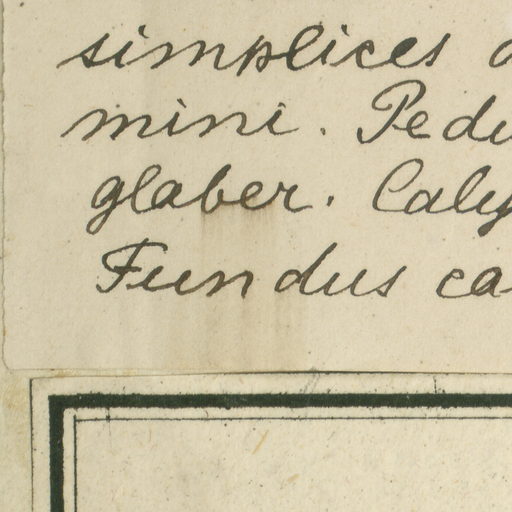 simplices
mini. Pedu
glaber. Caly
Fundus ca